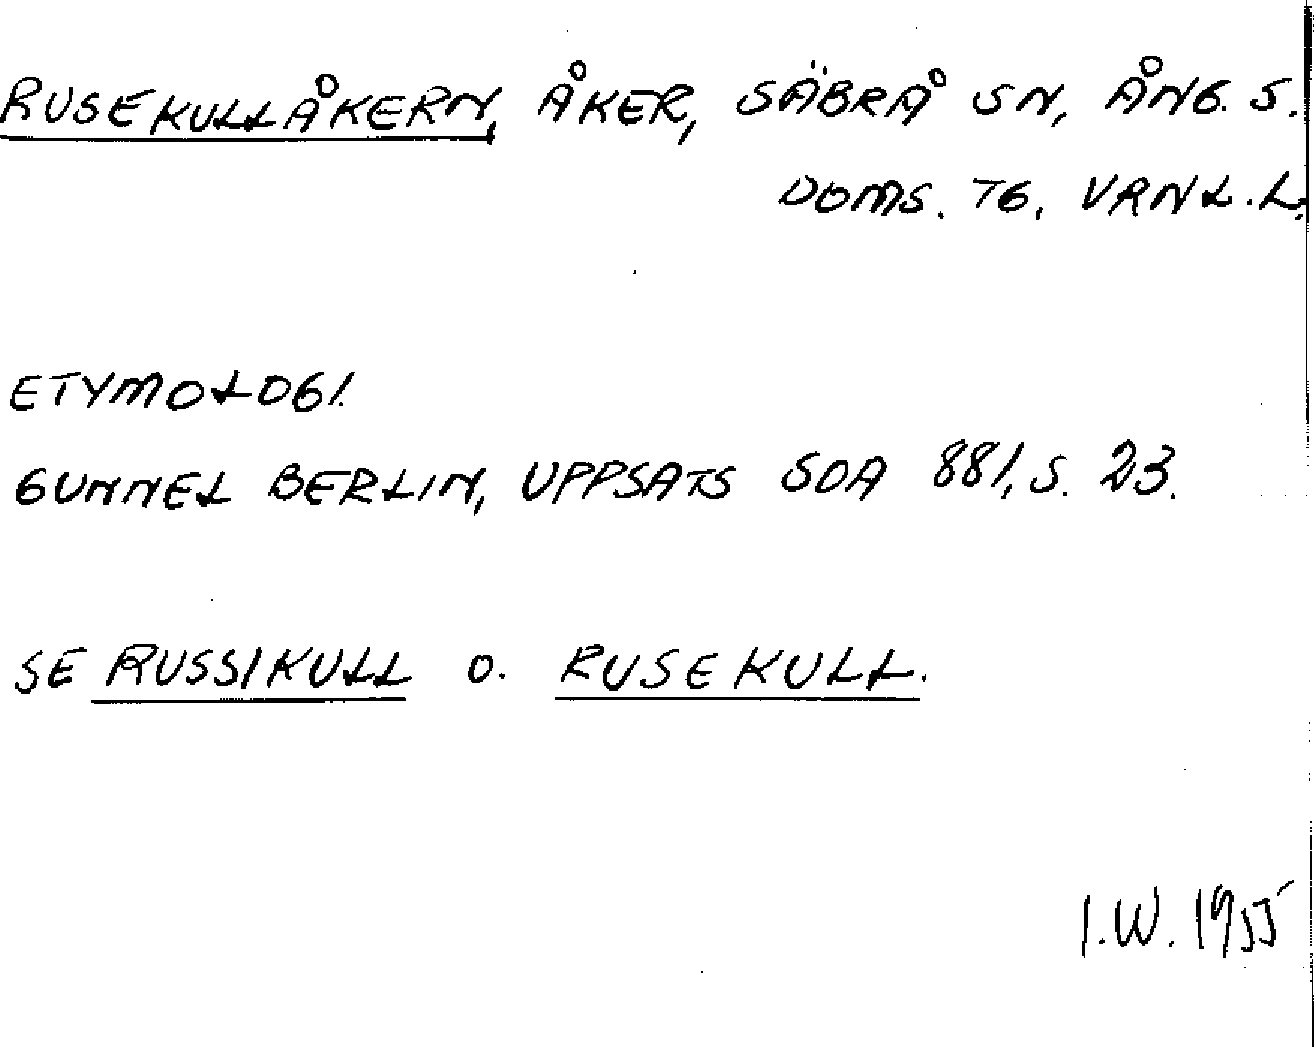 RUSEKULLÅKERN, ÅKER, SÄBRÅ SN, ÅNG. S.
DOMS. TG, VRNL. L.
ETYMOLOGI.
GUNNEL BERLIN, UPPSATS SOA 881, S. 23.
SE RUSSIKULL O. RUSEKULL.
I.W. 1955